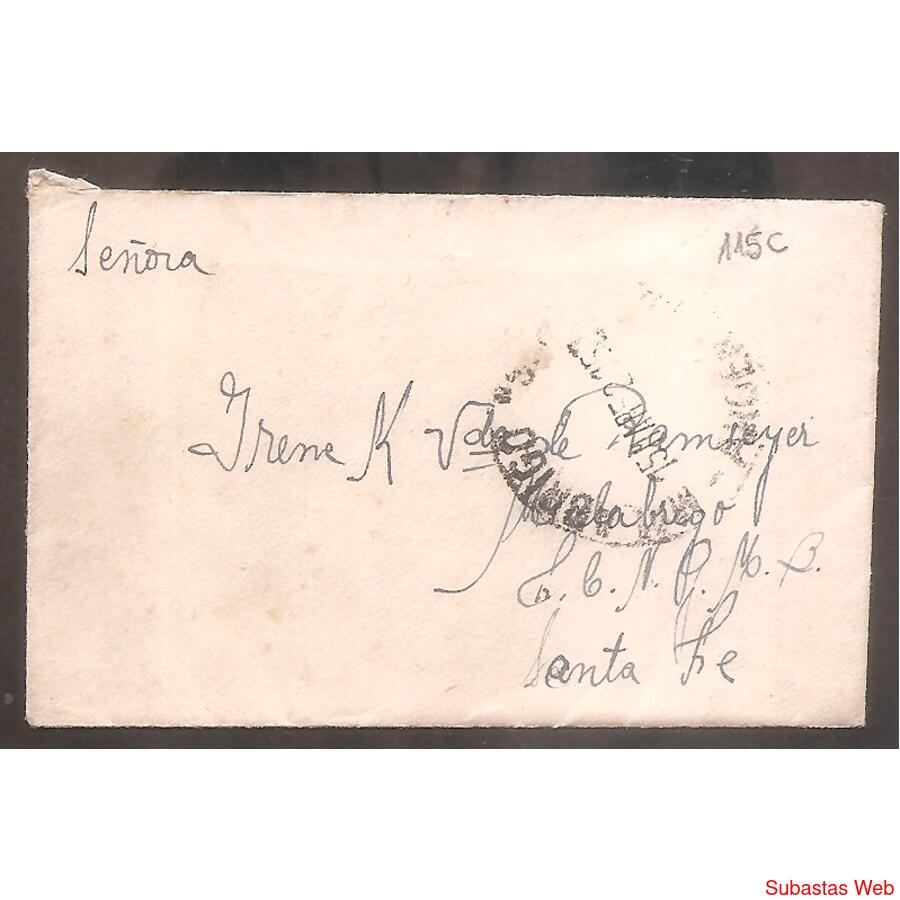 Señora
115c
Irene K Vda de Ramseyer
Malabrigo
F. C. N. G. M. B.
Santa Fe
Subastas Web